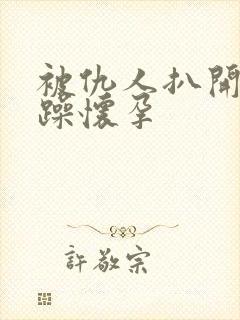 被仇人扒開
躁懷孕
許敬宗